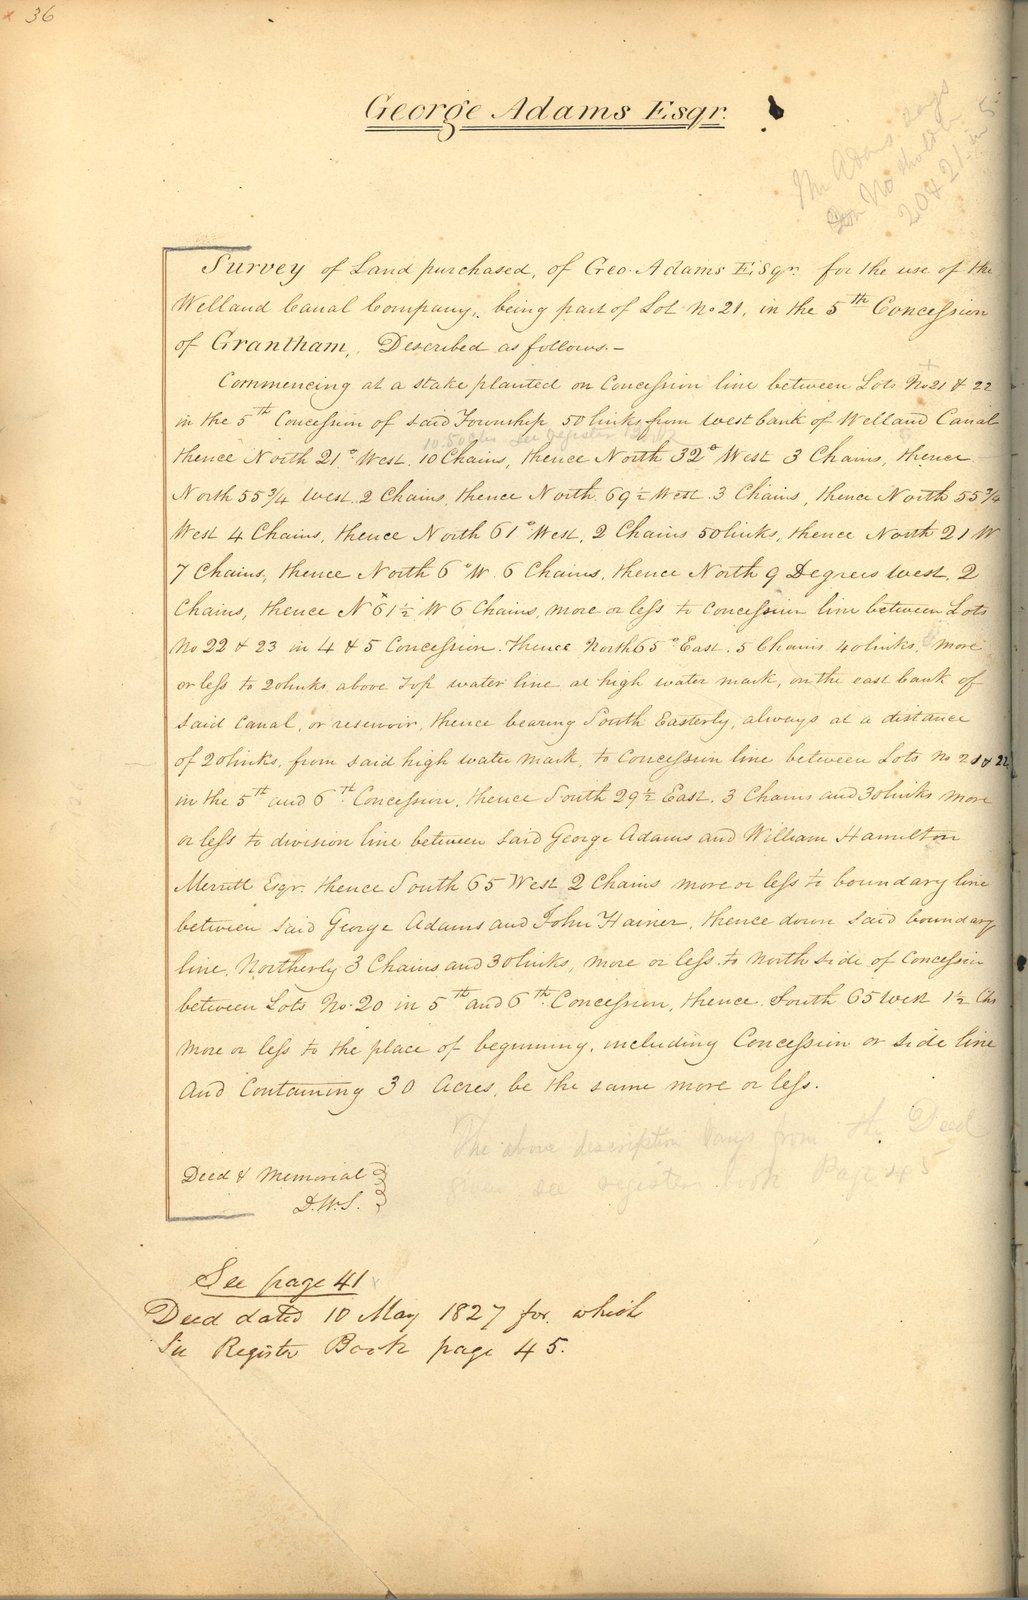 36
George Adams Esqr.
Mr Adams says
No should be
20 & 21 in 5
Survey of Land purchased, of Geo. Adams Esqr. for the use of the
Welland Canal Company, being part of Lot No 21, in the 5th Concession
of Grantham, Described as follows.-
Commencing at a stake planted on Concession line between Lots No 21 & 22
in the 5th Concession of said Township 50 links from west bank of Welland Canal
10.50 see register
thence North 21° West. 10 Chains, thence North 32° West 3 Chains, thence
North 55 3/4 West. 2 Chains, thence North 69 1/2 West. 3 Chains, thence North 55 3/4
West 4 Chains, thence North 61° West, 2 Chains 50 links, thence North 21 W
7 Chains, thence North 6° W. 6 Chains, thence North 9 Degrees West, 2
Chains, thence N 61 1/2 W 6 Chains, more or less to Concession line between Lots
No 22 & 23 in 4 & 5 Concession. thence North 65° East. 5 Chains 40 links, more
or less to 20 links above Top water line at high water mark, on the east bank of
said Canal, or reservoir, thence bearing South Easterly, always at a distance
of 20 links, from said high water mark, to Concession line between Lots No 21 & 22
in the 5th and 6th Concession, thence South 29 1/2 East. 3 Chains and 30 links more
or less to division line between said George Adams and William Hamilton
Merritt Esqr. thence South 65 West 2 Chains more or less to boundary line
between said George Adams and John Hainer, thence down said boundary
line, Northerly 3 Chains and 30 links, more or less to north side of Concession
between Lots No. 20 in 5th and 6th Concession, thence South 65 West 1 1/2 Chs
more or less to the place of beginning, including Concession or side line
And Containing 30 Acres, be the same more or less.
The above description varys from the Deed
given see register book Page 45
Deed & Memorial
D.W.S.
See page 41
Deed dated 10 May 1827 for which
See Register Book page 45.